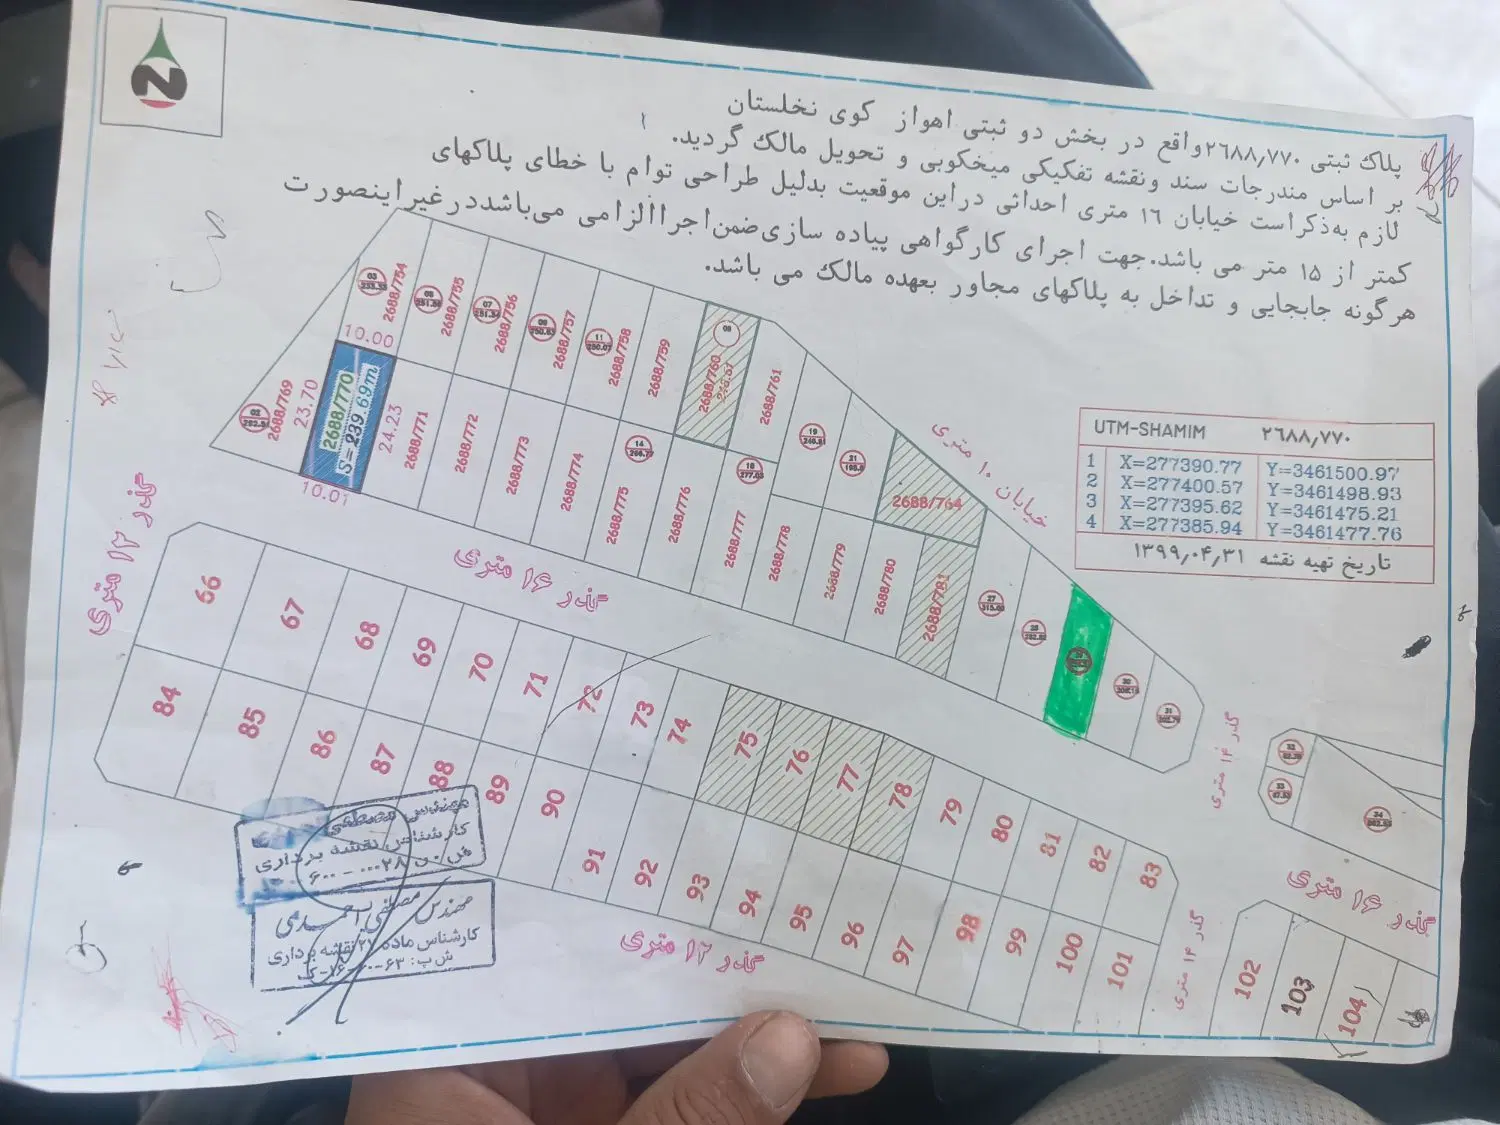 N
پلاک ثبتی ۲٦۸۸٫۷۷۰واقع در بخش دو ثبتی اهواز کوی نخلستان
بر اساس مندرجات سند ونقشه تفکیکی میخکوبی و تحویل مالک گردید.
لازم به‌ذکراست خیابان ۱٦ متری احداثی دراین موقعیت بدلیل طراحی توام با خطای پلاکهای
کمتر از ۱۵ متر می باشد.جهت اجرای کارگواهی پیاده سازی‌ضمن‌اجراالزامی می‌باشددرغیراینصورت
هرگونه جابجایی و تداخل به پلاکهای مجاور بعهده مالک می باشد.
UTM-SHAMIM ۲٦۸۸٫۷۷۰
1 X=277390.77 Y=3461500.97
2 X=277400.57 Y=3461498.93
3 X=277395.62 Y=3461475.21
4 X=277385.94 Y=3461477.76
تاریخ تهیه نقشه ۱۳۹۹٫۰۴٫۳۱
03 2688/754
2688/755
07 2688/756
2688/757
11 2688/758
2688/759
2688/760
2688/761
19
21
2688/764
27
30
31
02 2688/769
10.00
23.70
2688/770
S=239.69m
24.23
10.01
2688/771
2688/772
2688/773
2688/774
14
2688/775
2688/776
2688/777
2688/778
2688/779
2688/780
2688/781
خیابان ۱۰ متری
گذر ۱۲ متری
گذر ۱۶ متری
گذر ۱۴ متری
32
33
34
گذر ۱۶ متری
66 67 68 69 70 71 72 73 74 75 76 77 78 79 80 81 82 83
84 85 86 87 88 89 90 91 92 93 94 95 96 97 98 99 100 101
گذر ۱۴ متری
102 103 104
گذر ۱۲ متری
مهندس مصطفی
کارشناس نقشه برداری
مهندس مصطفی احمدی
کارشناس ماده ۲۷ نقشه برداری